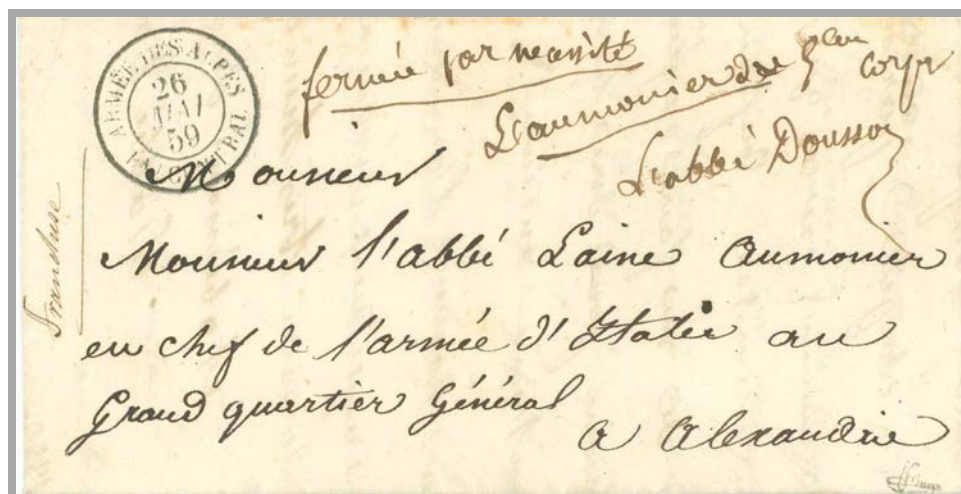 ARMÉE DES ALPES
26
MAI
59
CENTRAL
fermée par necessité
L'aumonier du 3eme corps
L'abbé Dousso
Franchise
Monsieur
Monsieur l'abbé Laine Aumonier
en chef de l'armée d'Italie au
Grand quartier Général
a Alexandrie